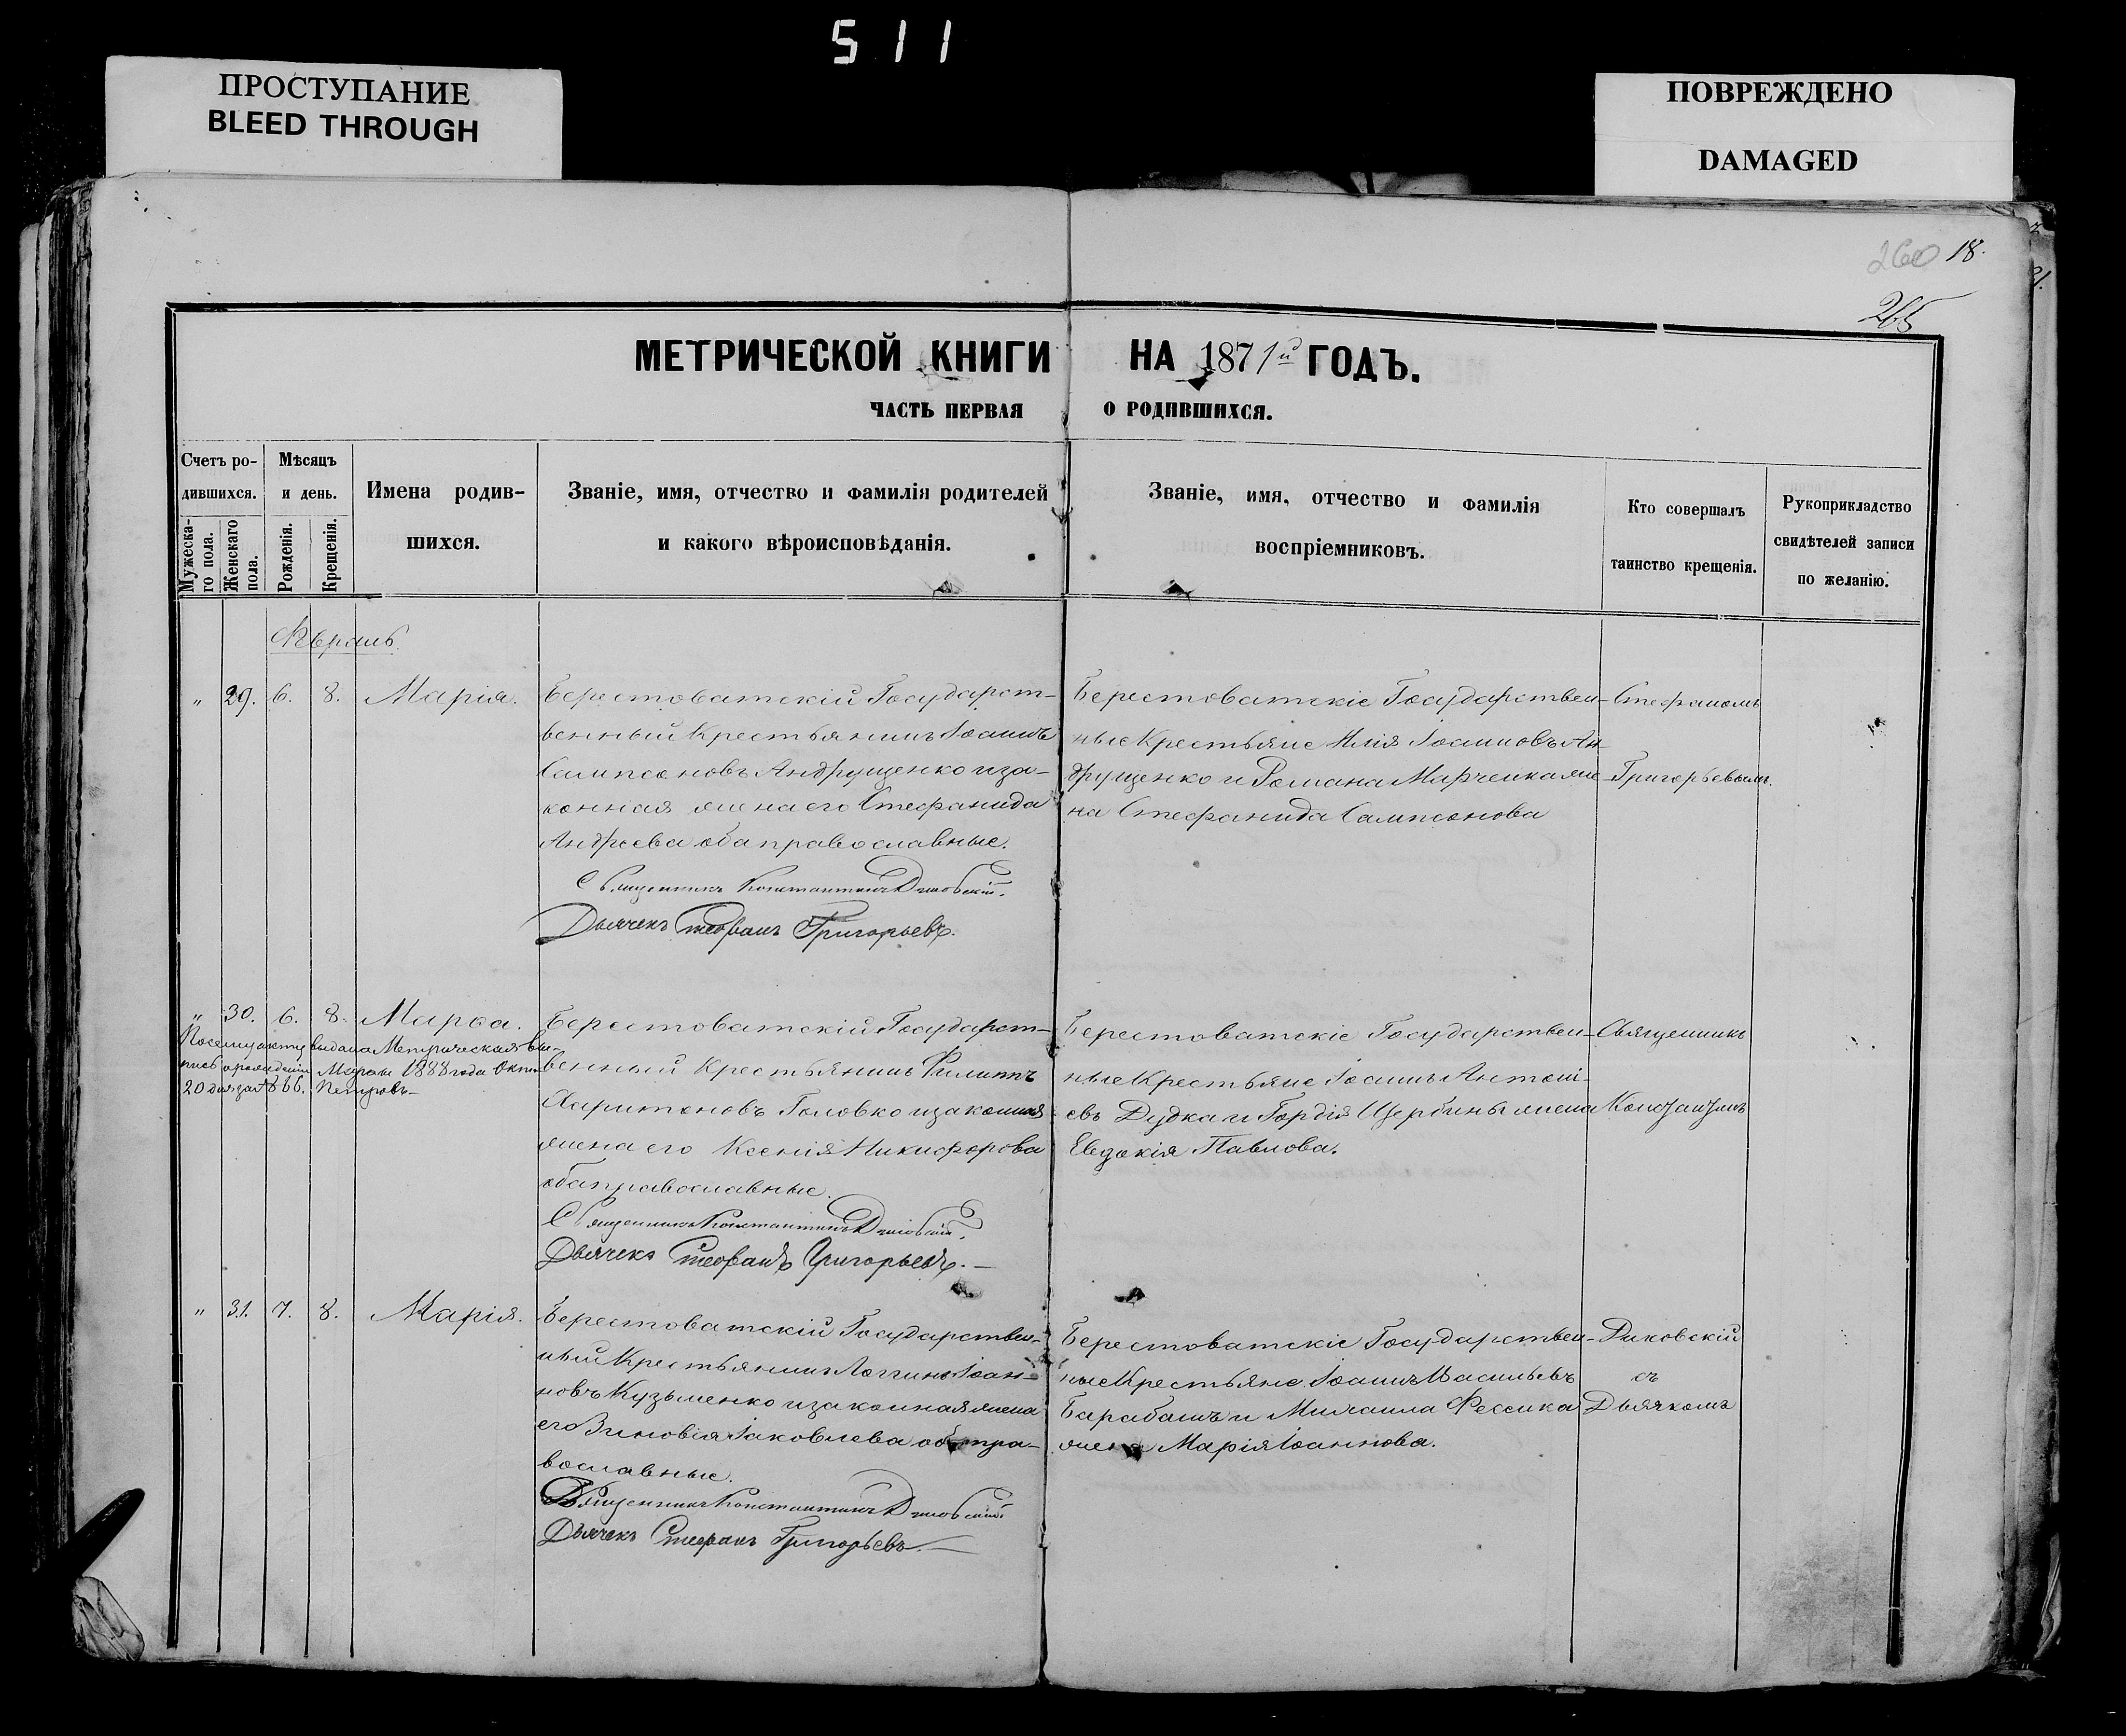 511
ПРОСТУПАНИЕ
BLEED THROUGH
ПОВРЕЖДЕНО
DAMAGED
260 18.
265
МЕТРИЧЕСКОЙ КНИГИ НА 1871й ГОДЪ.
ЧАСТЬ ПЕРВАЯ О РОДИВШИХСЯ.
Счетъ ро-
дившихся.
Мужеска-
го пола.
Женскаго
пола.
Мѣсяцъ
и день.
Рожденія.
Крещенія.
Имена родив-
шихся.
Званіе, имя, отчество и фамилія родителей
и какого вѣроисповѣданія.
Званіе, имя, отчество и фамилія
воспріемниковъ.
Кто совершалъ
таинство крещенія.
Рукоприкладство
свидѣтелей записи
по желанію.
„ 29. 6. 8. Марія.
Берестоватскій Государст-
венный Крестьянинъ Іоаннъ
Сампсоновъ Андрущенко и за-
конная жена его Стефанида
Андреева оба православные.
Священникъ Константинъ
Дьячекъ Стефанъ Григорьевъ.
Берестоватскіе Государствен-
ные Крестьяне Илія Іоанновъ Ан-
друщенко и Романа Марченка же-
на Стефанида Сампсонова
Стефаномъ
Григорьевымъ.
„ 30. 6. 8. Марѳа.
По сему акту выдана Метрическая вы-
пись о рожденіи Марѳы 1888 года Октя
20 дня за № 866. Петровъ
Берестоватскій Государст-
венный Крестьянинъ Филиппъ
Харитоновъ Головко и законная
жена его Ксенія Никифорова
оба православные.
Священникъ Константинъ
Дьячекъ Стефанъ Григорьевъ.
Берестоватскіе Государствен-
ные Крестьяне Іоаннъ Антоні-
евъ Дудка и Гордія Щербины жена
Евдокія Павлова.
Священникъ
Константинъ
„ 31. 7. 8. Марія.
Берестоватскій Государствен-
ный Крестьянинъ Логгинъ Іоан-
новъ Кузьменко и законная жена
его Зиновія Іаковлева оба пра-
вославные.
Священникъ Константинъ
Дьячекъ Стефанъ Григорьевъ.
Берестоватскіе Государствен-
ные Крестьяне Іоаннъ Васильевъ
Барабашъ и Михаила Фесенка
жена Марія Іоаннова.
Диковскій
съ
Дьячкомъ